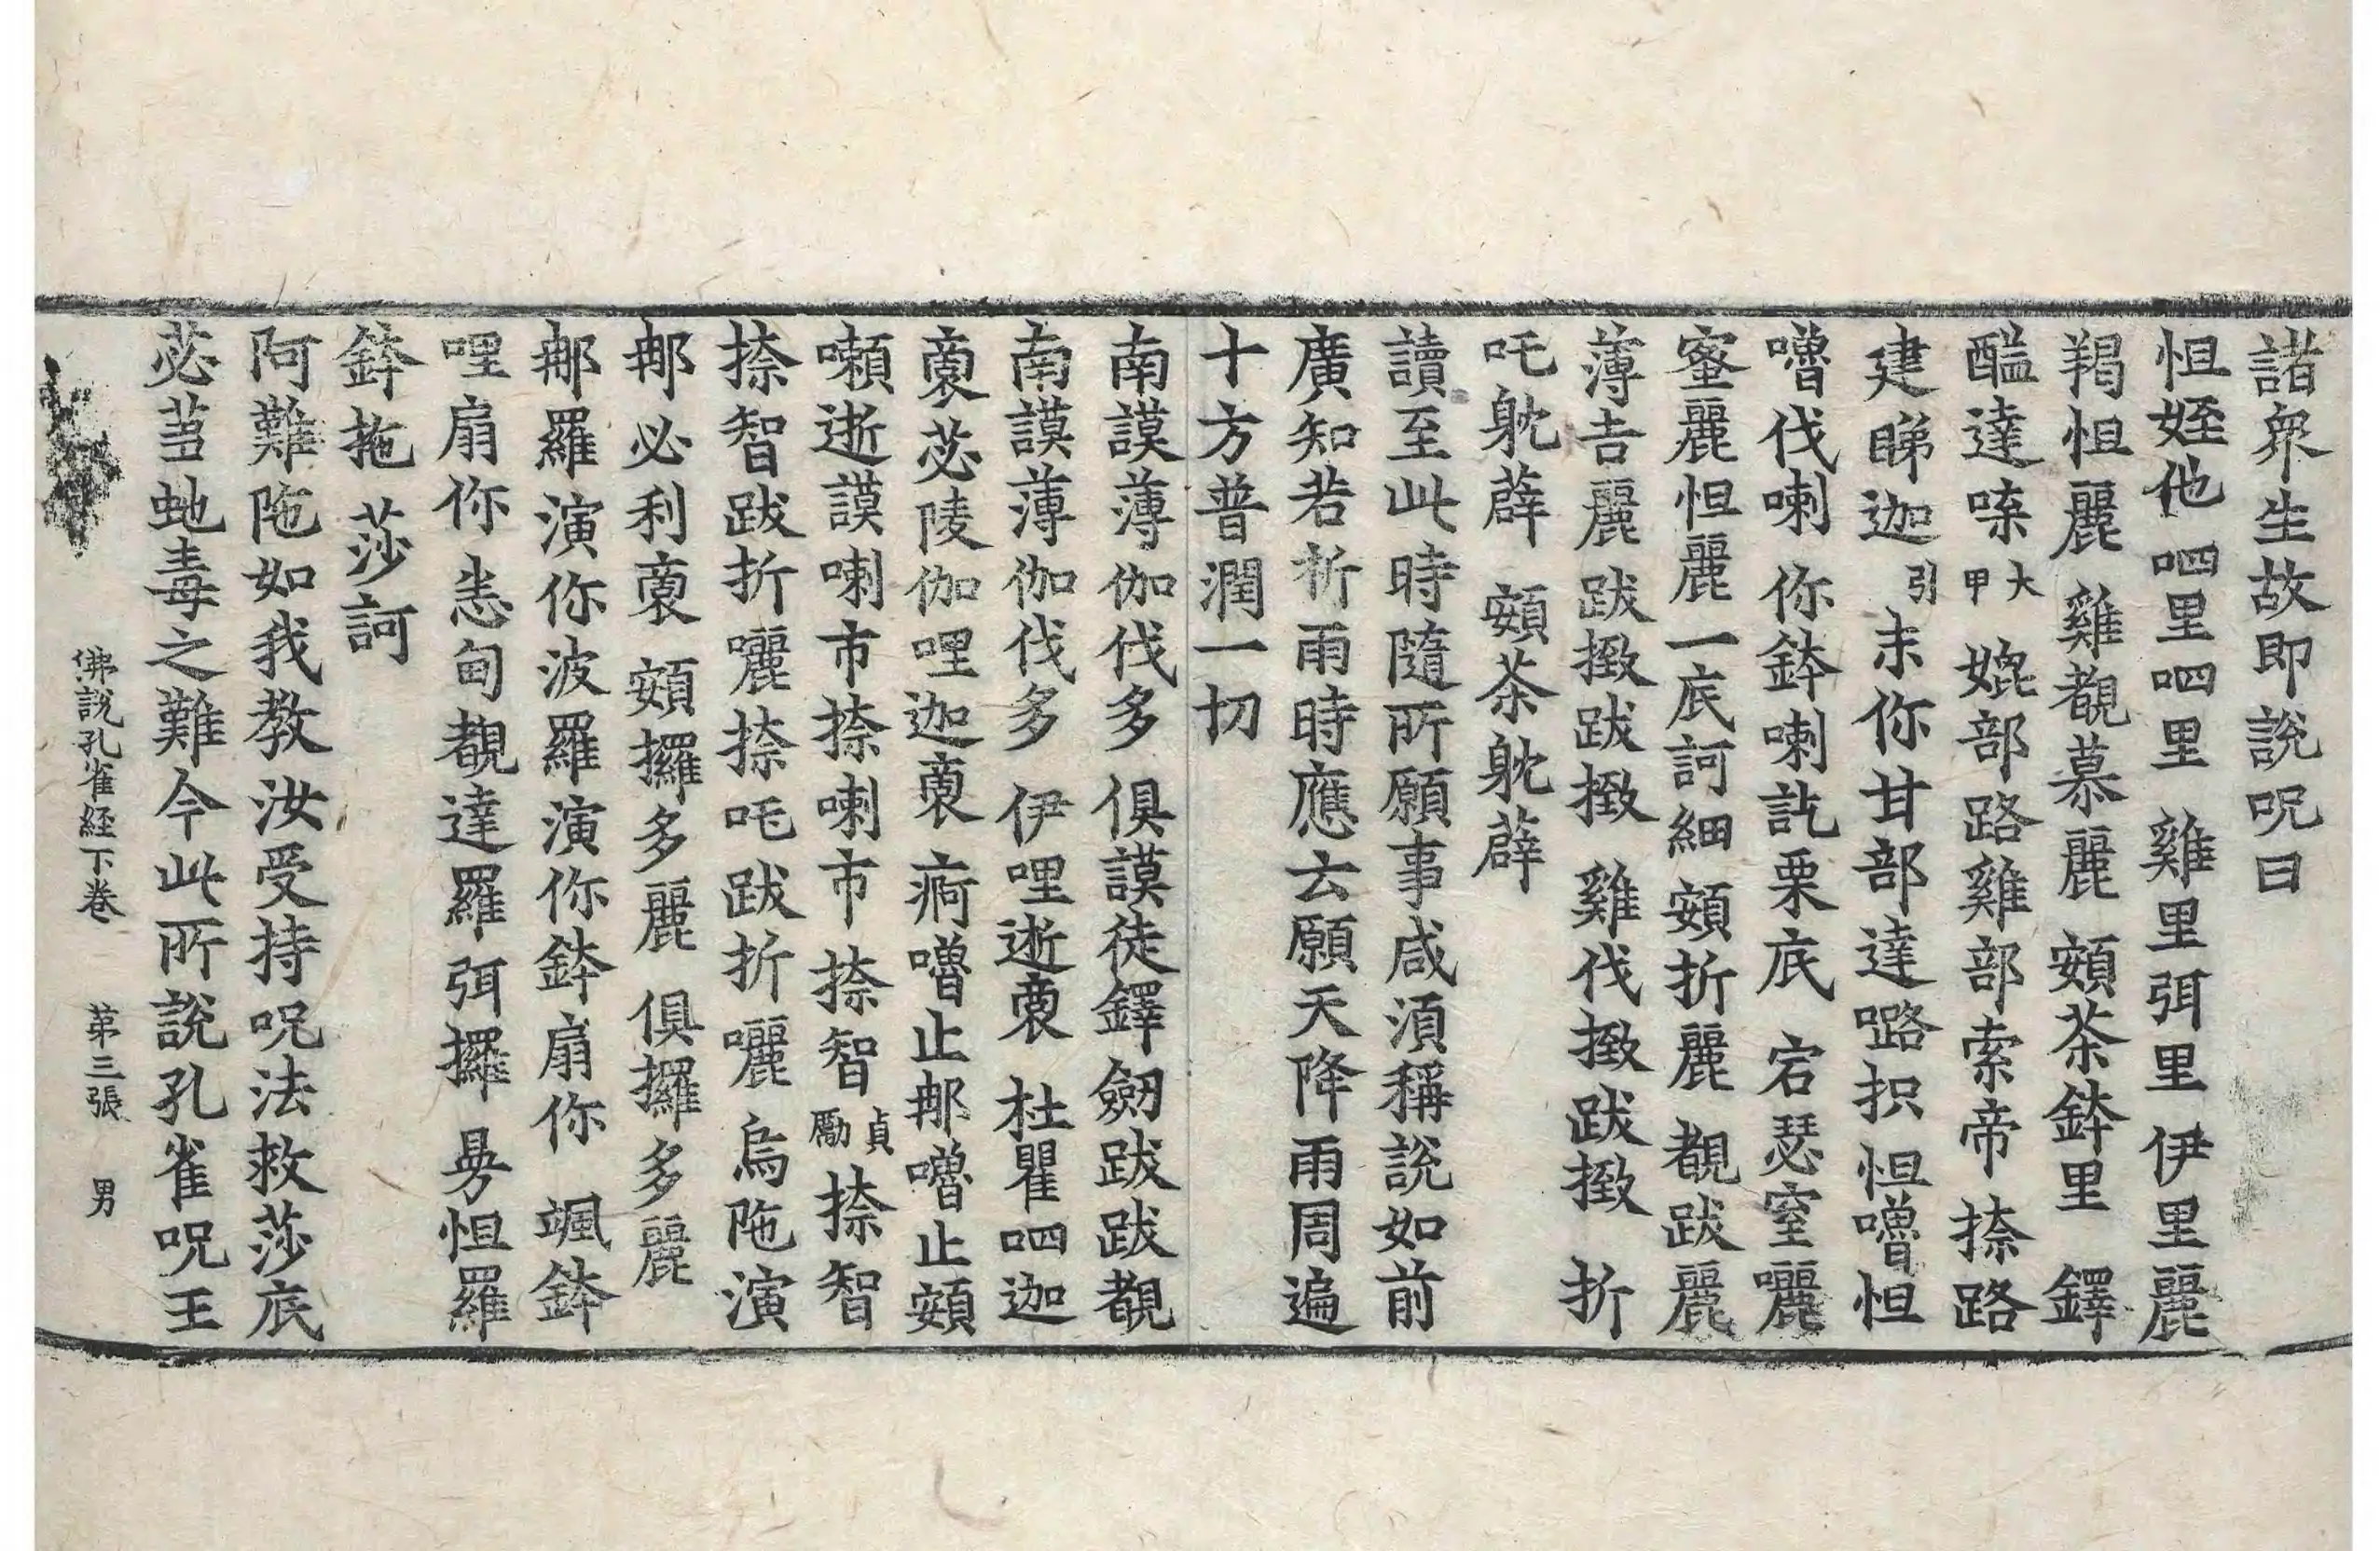 諸衆生故即説呪曰
怛姪他 呬里呬里 雞里弭里 伊里麗
羯怛麗 雞覩慕麗 頞茶鉢里 鐸
醓達㗚大甲 㛂部路雞部索帝 捺路
建睇迦引 末你甘部達㘾抧 怛嚕怛
嚕伐喇 你鉢喇訖栗底 宕瑟窒囇
蜜麗怛麗 一底訶細 頞折麗 覩跋麗
薄吉麗 跋緻跋緻 雞伐緻跋緻 折
吒躭薜 頞茶躭薜
讀至此時隨所願事咸須稱說如前
廣知若祈雨時應云願天降雨周遍
十方普潤一切
南謨薄伽伐多 俱謨徒鐸劒跋跋覩
南謨薄伽伐多 伊哩逝裒 杜瞿呬迦
裒苾陵伽哩迦裒 痾嚕止郍嚕止頞
嚩逝謨喇市捺喇市 捺智貞勵捺智
捺智跋折囇捺吒跋折囇烏陁演
郍必利裒 頞攞多麗 俱攞多麗
郍羅演你波羅演你鉢扇你 颯鉢
哩扇你 恚甸覩達羅弭攞 㝵怛羅
鉢拖 莎訶
阿難陁如我教汝受持呪法救莎底
苾蒭虵毒之難今此所説孔雀呪王
佛說孔雀経下卷 苐三張 男